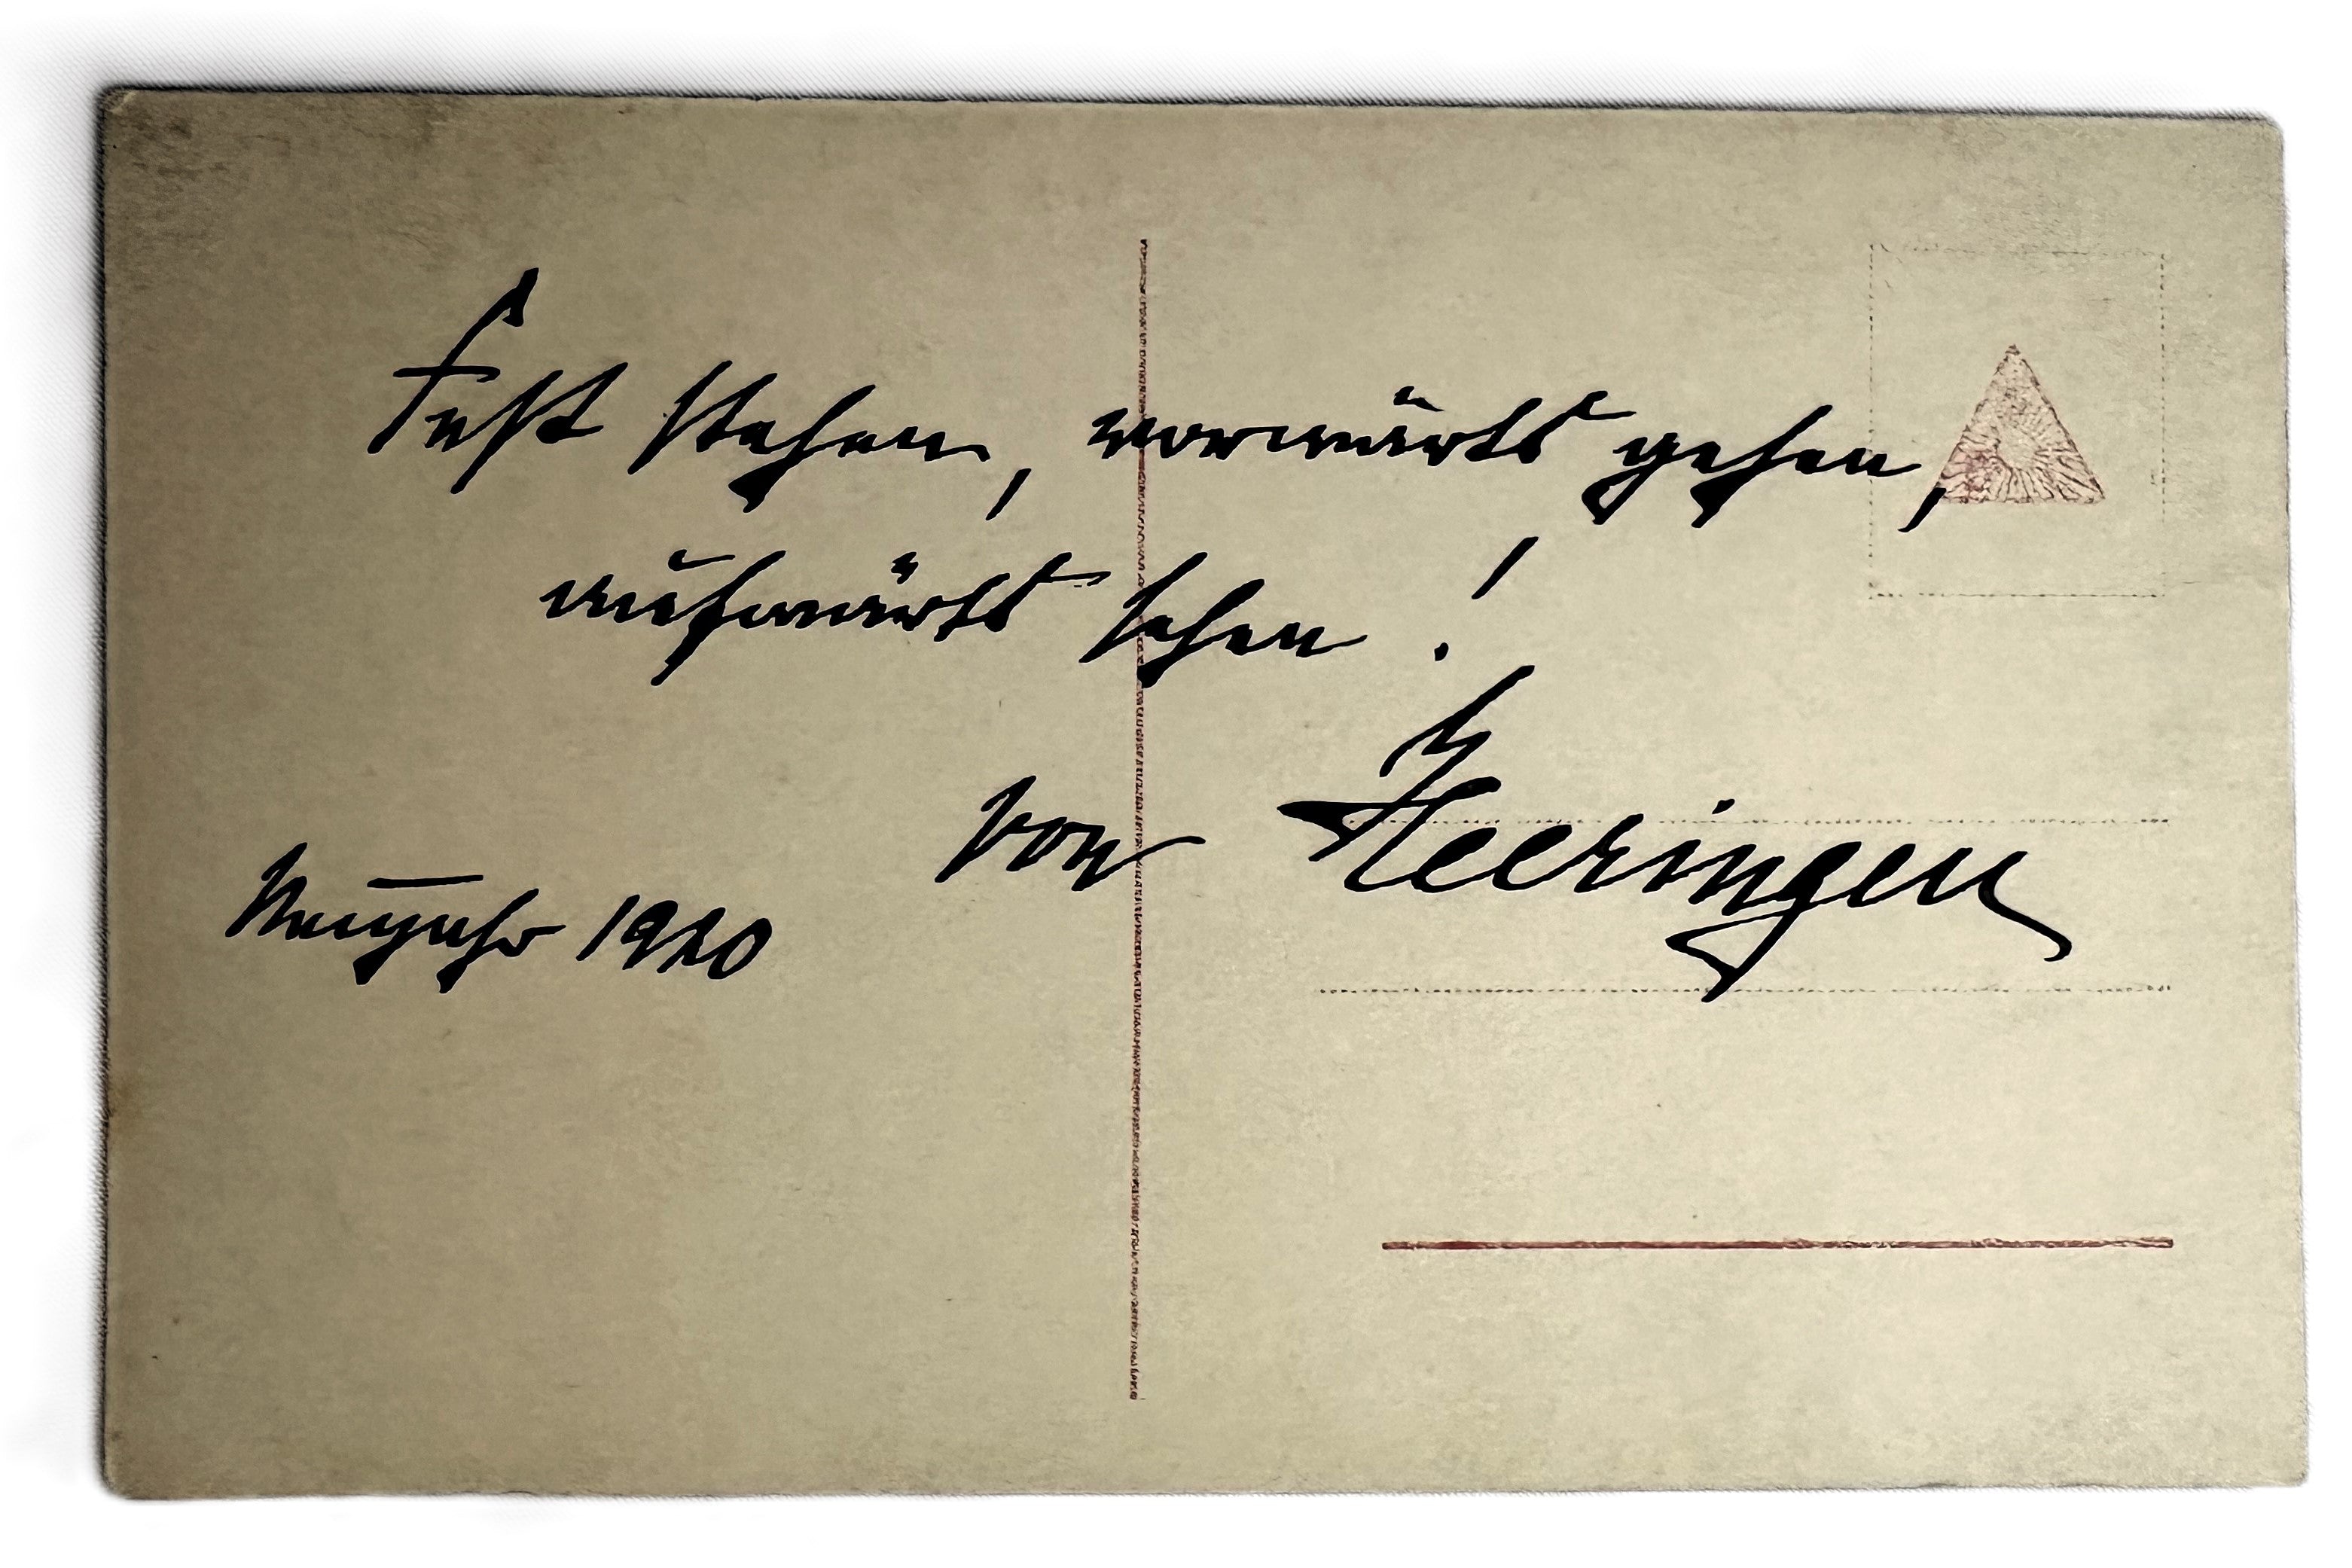 Fest stehen, vorwärts gehen,
aufwärts sehen!
von Heeringen
Neujahr 1920